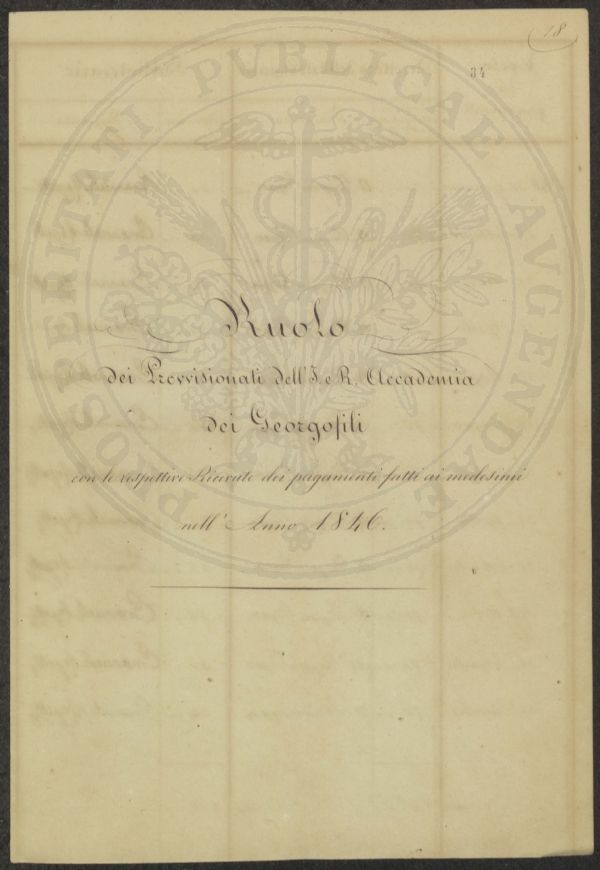 18
34
PROSPERITATI PUBLICAE AUGENDAE
Ruolo
dei Provvisionati dell'I. e R. Accademia
dei Georgofili
con le respettive Ricevute dei pagamenti fatti ai medesimi
nell'Anno 1846.